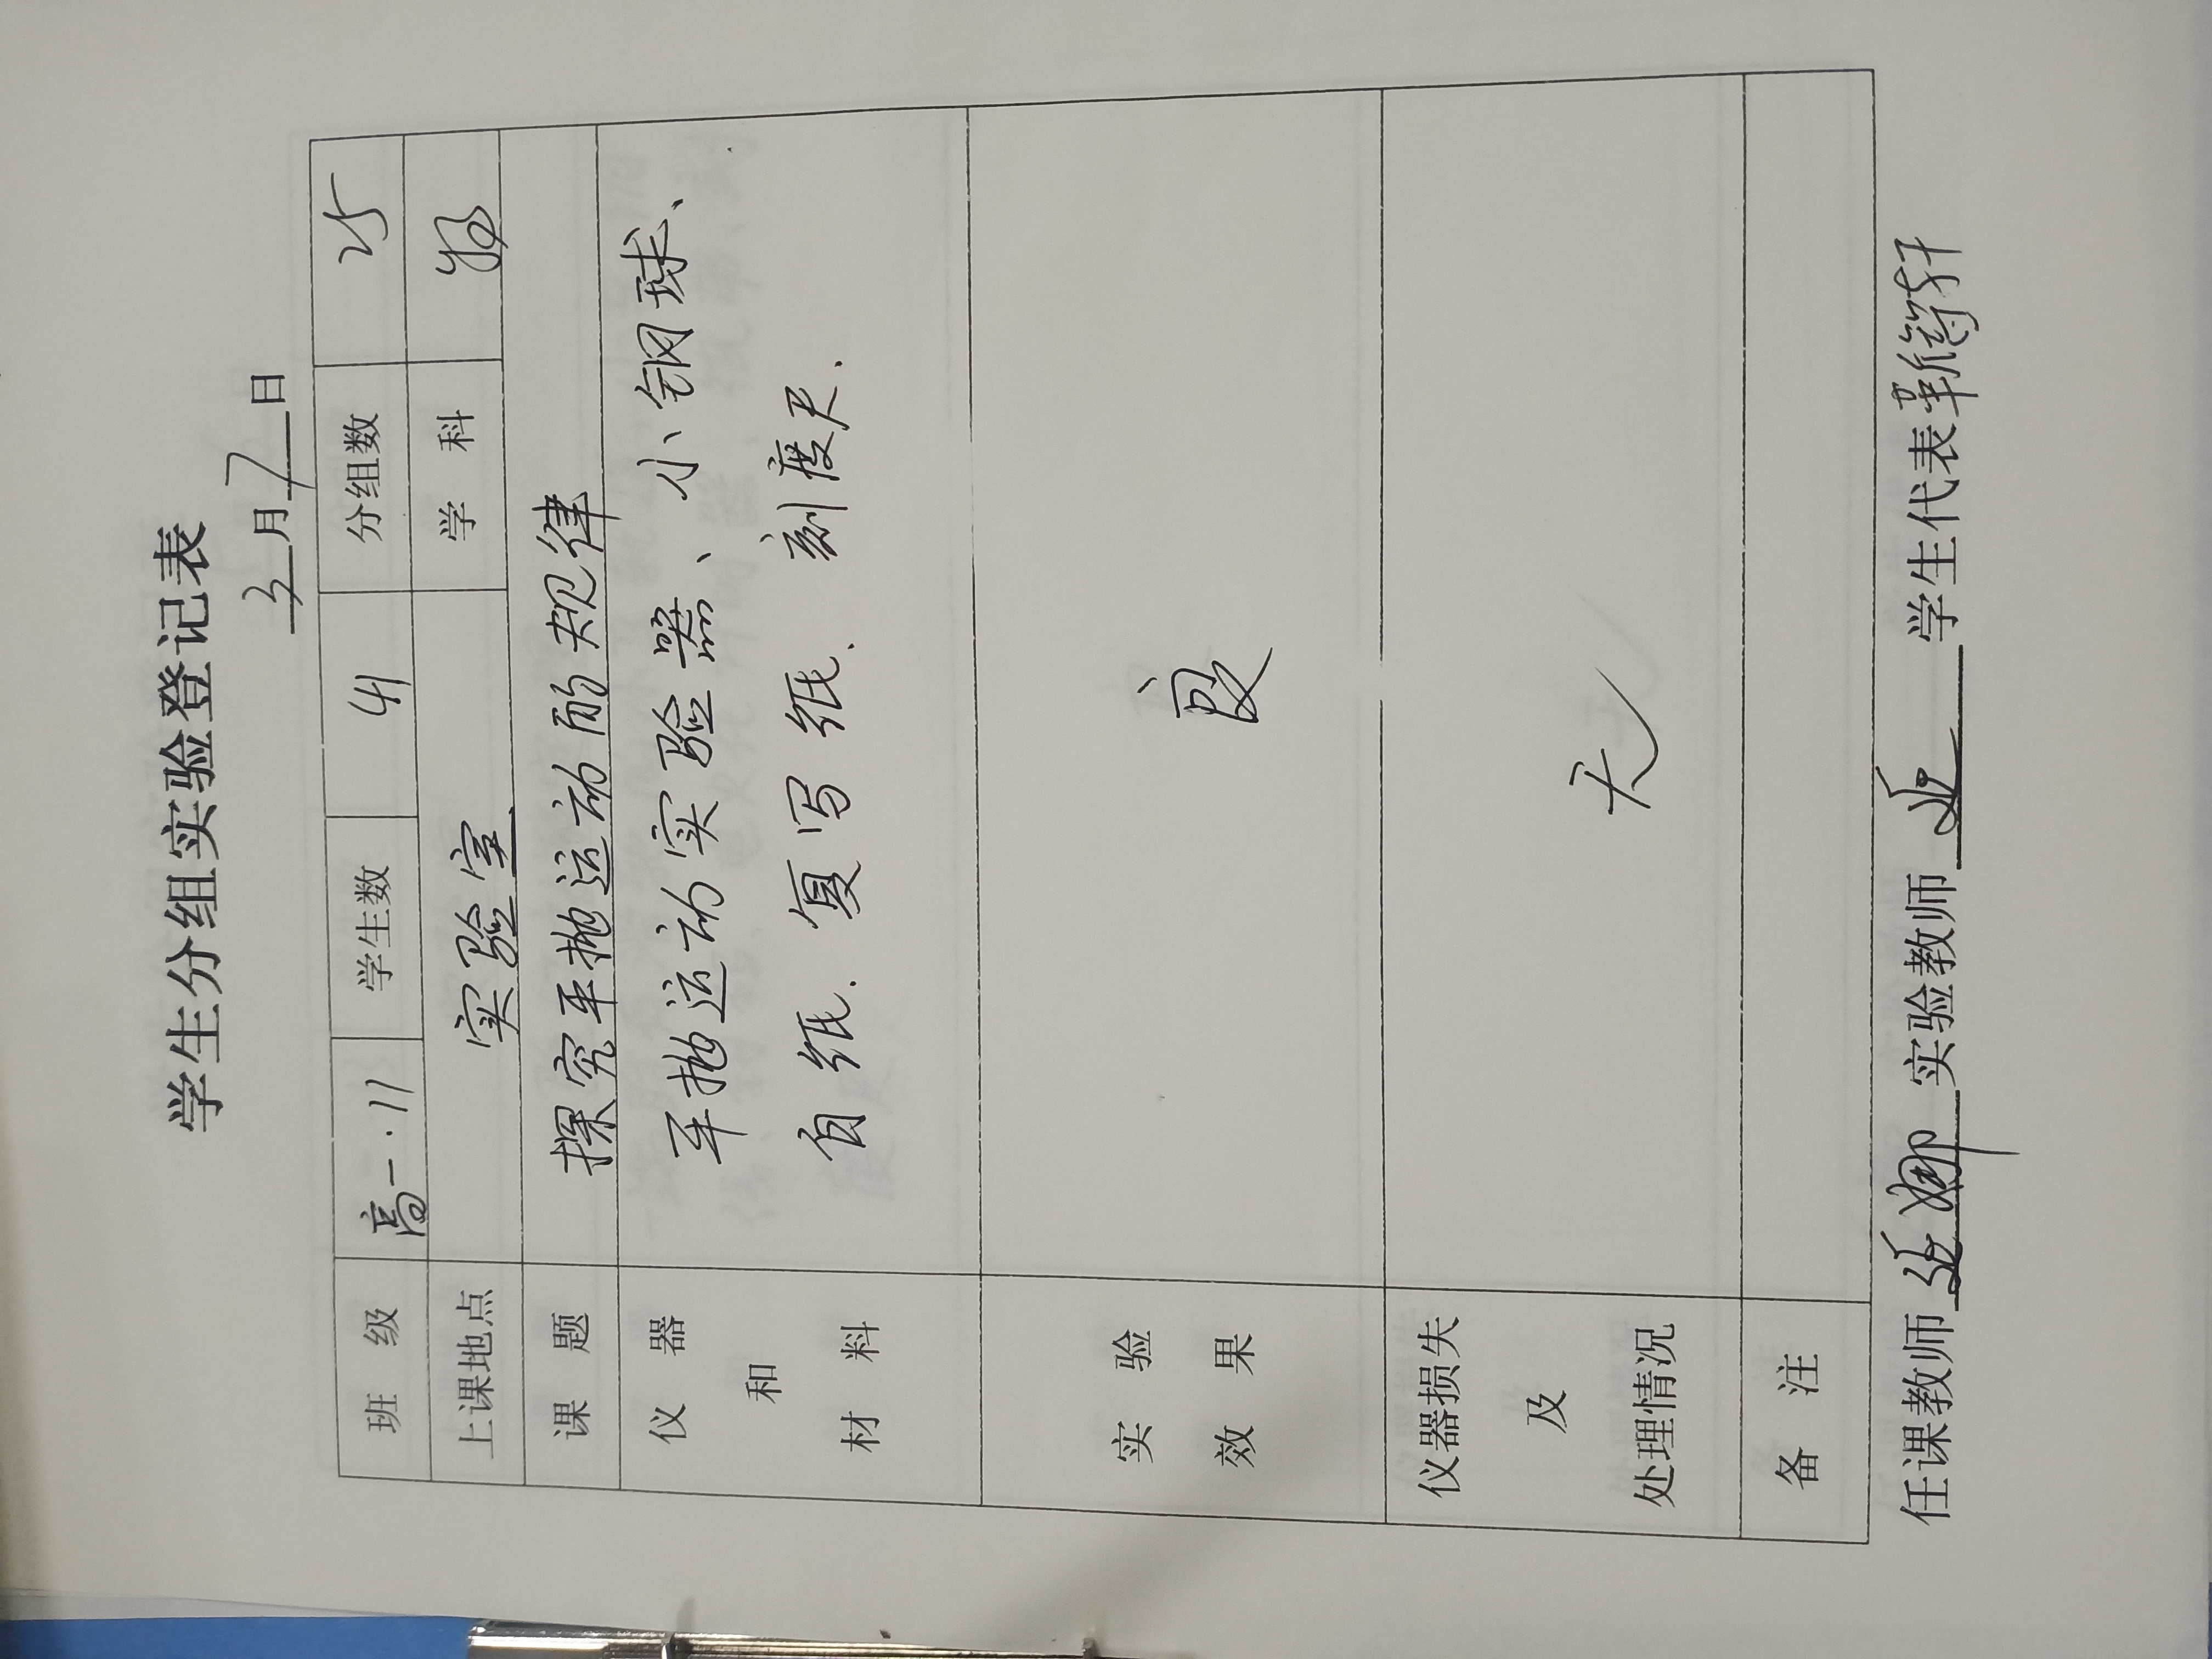 学生分组实验登记表
3月7日
班级 高一.11 学生数 41 分组数 25
上课地点 实验室 学科
课题 探究平抛运动的规律
仪器和材料 平抛运动实验器、小钢球、
白纸、复写纸、刻度尺.
实验效果 良
仪器损失及处理情况 无
备注
任课教师 实验教师 学生代表